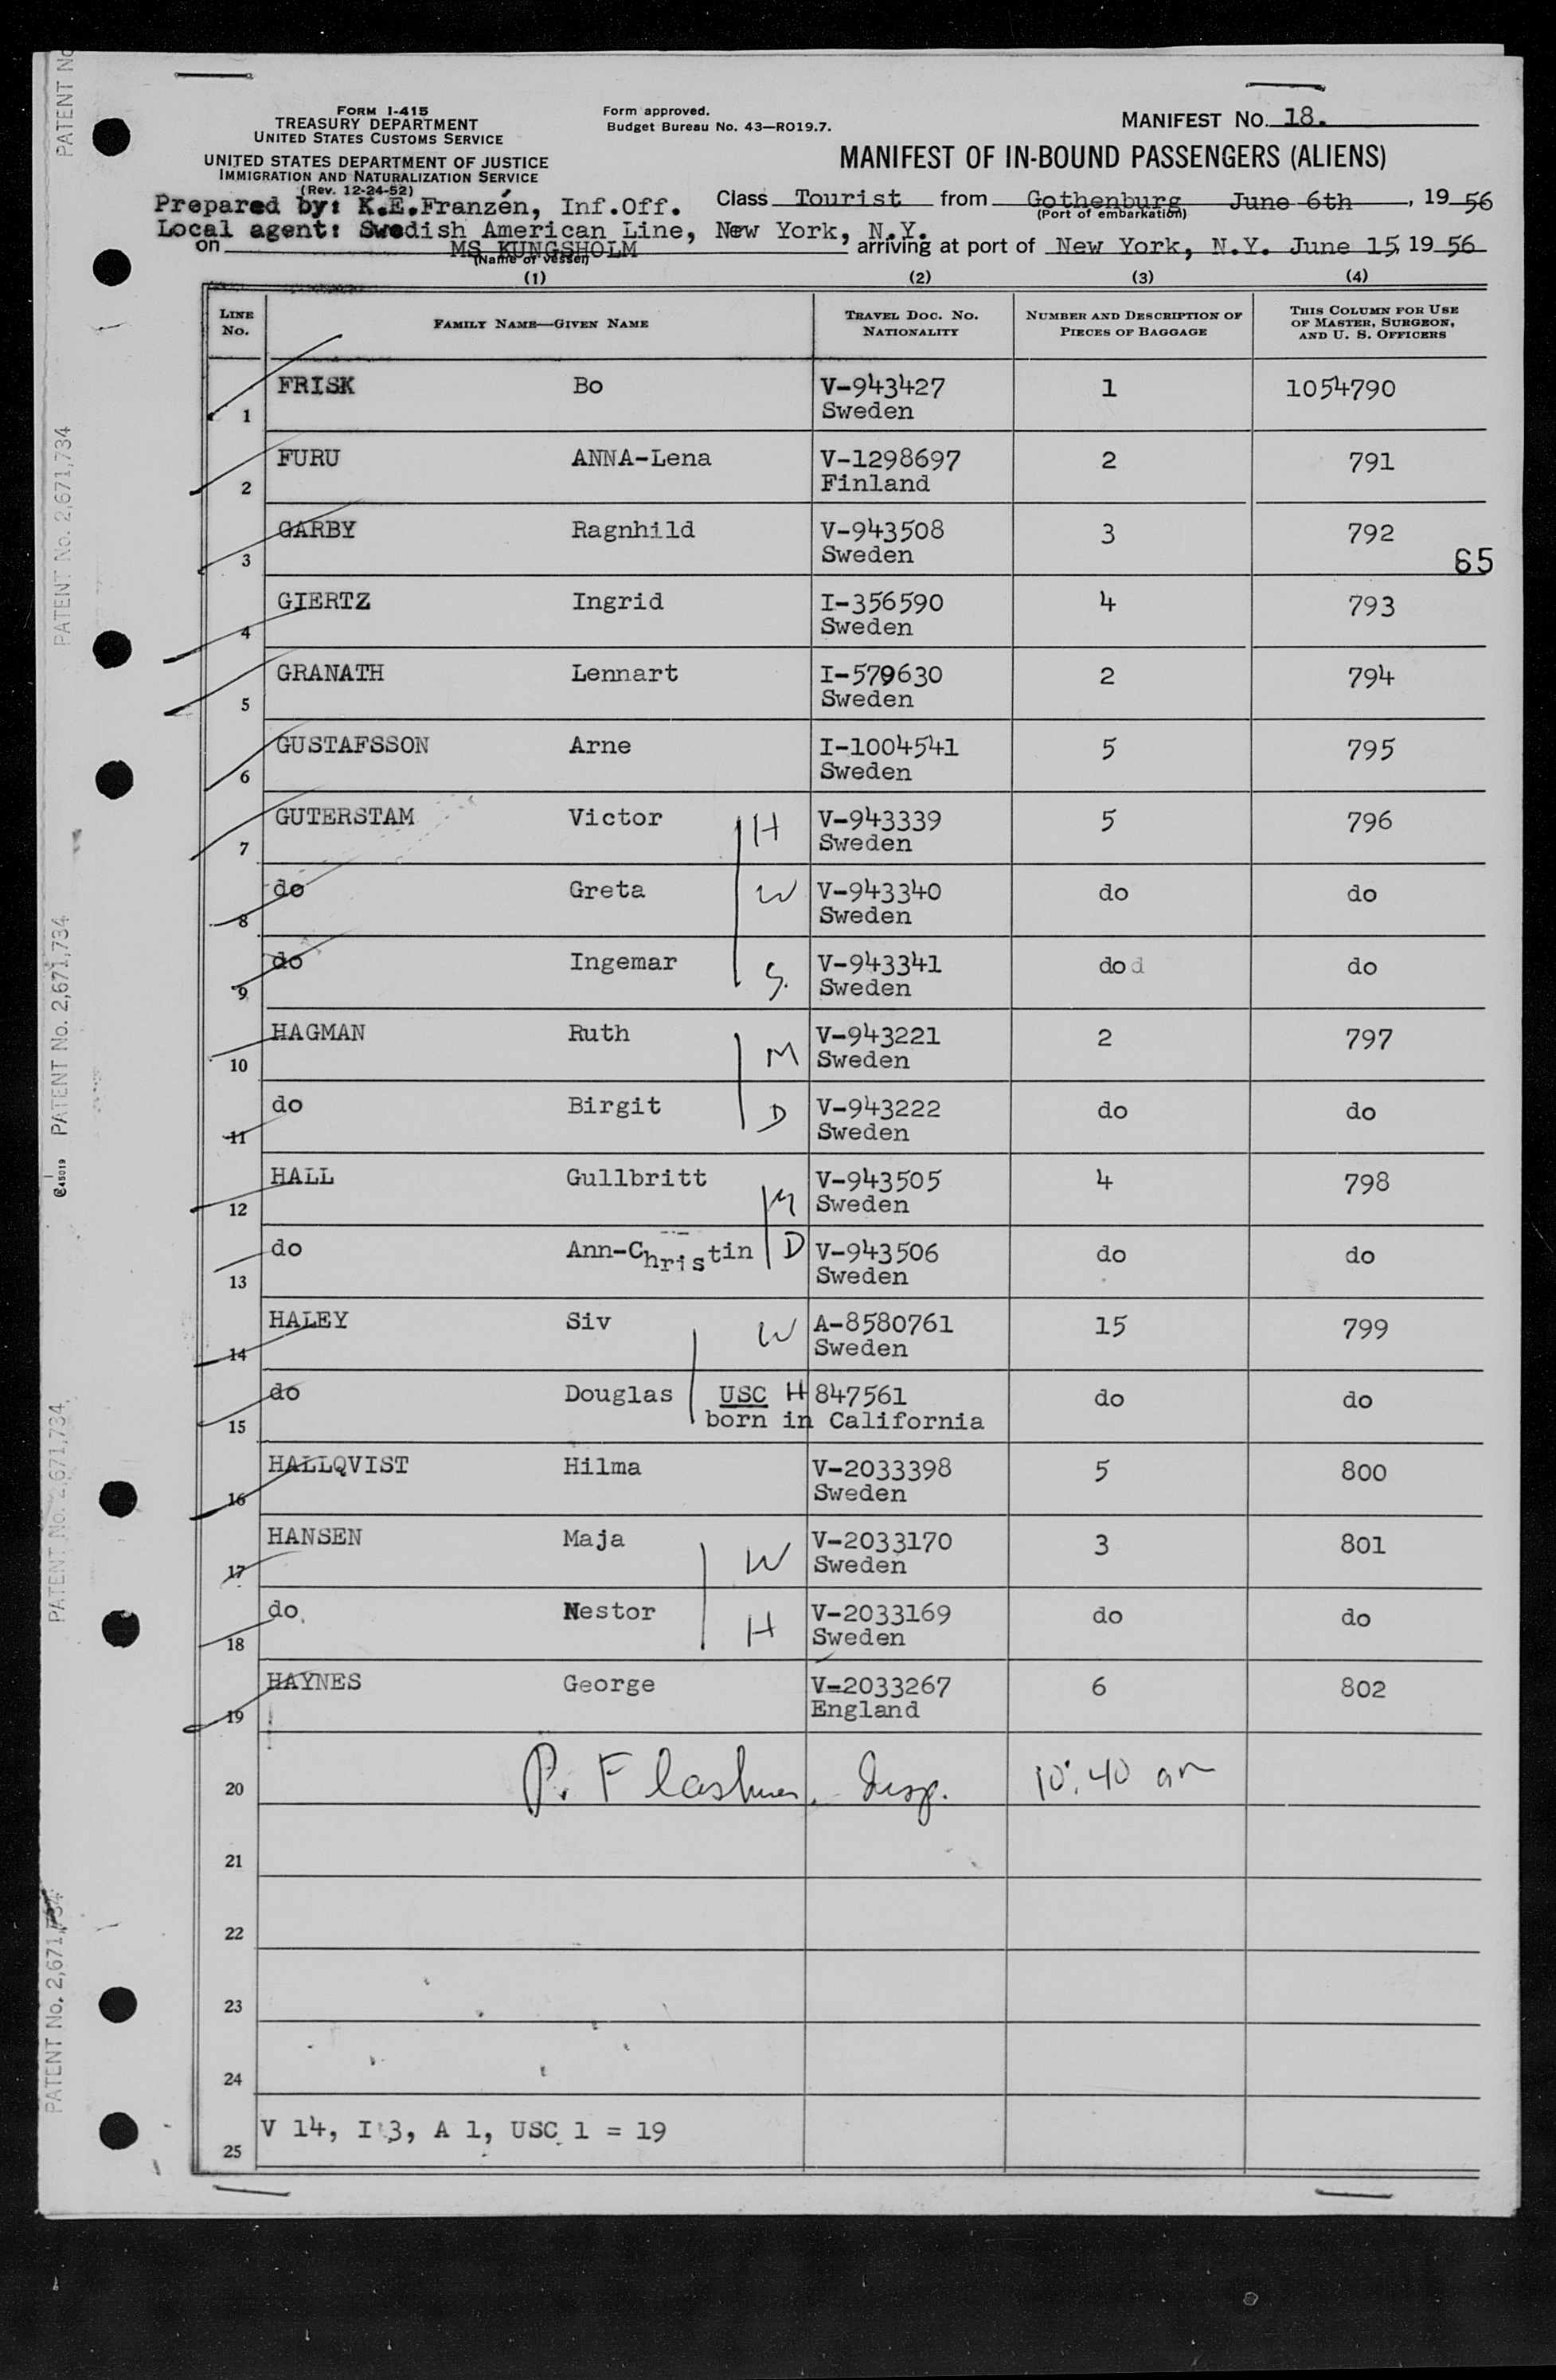 FORM I-415
TREASURY DEPARTMENT
UNITED STATES CUSTOMS SERVICE
UNITED STATES DEPARTMENT OF JUSTICE
IMMIGRATION AND NATURALIZATION SERVICE
(Rev. 12-24-52)
Form approved.
Budget Bureau No. 43—RO19.7.
MANIFEST NO. 18.
MANIFEST OF IN-BOUND PASSENGERS (ALIENS)
Prepared by: K.E.Franzén, Inf.Off.
Class Tourist from Gothenburg June 6th, 19 56
(Port of embarkation)
Local agent: Swedish American Line, New York, N.Y.
on MS KUNGSHOLM arriving at port of New York, N.Y. June 15, 19 56
(Name of vessel)
(1) (2) (3) (4)
LINE NO. FAMILY NAME—GIVEN NAME TRAVEL DOC. NO. NATIONALITY NUMBER AND DESCRIPTION OF PIECES OF BAGGAGE THIS COLUMN FOR USE OF MASTER, SURGEON, AND U. S. OFFICERS
1 FRISK Bo V-943427 1 1054790
Sweden
2 FURU ANNA-Lena V-1298697 2 791
Finland
3 GARBY Ragnhild V-943508 3 792
Sweden
65
4 GIERTZ Ingrid I-356590 4 793
Sweden
5 GRANATH Lennart I-579630 2 794
Sweden
6 GUSTAFSSON Arne I-1004541 5 795
Sweden
7 GUTERSTAM Victor H V-943339 5 796
Sweden
8 do Greta W V-943340 do do
Sweden
9 do Ingemar S. V-943341 do d do
Sweden
10 HAGMAN Ruth M V-943221 2 797
Sweden
11 do Birgit D V-943222 do do
Sweden
12 HALL Gullbritt M V-943505 4 798
Sweden
13 do Ann-Christin D V-943506 do do
Sweden
14 HALEY Siv W A-8580761 15 799
Sweden
15 do Douglas USC H 847561 do do
born in California
16 HALLQVIST Hilma V-2033398 5 800
Sweden
17 HANSEN Maja W V-2033170 3 801
Sweden
18 do Nestor H V-2033169 do do
Sweden
19 HAYNES George V-2033267 6 802
England
20 P. Flashner, Insp. 10:40 am
21
22
23
24
25 V 14, I 3, A 1, USC 1 = 19
PATENT No
PATENT No. 2,671,734
PATENT No. 2,671,734
PATENT No. 2,671,734
PATENT No. 2,671,734